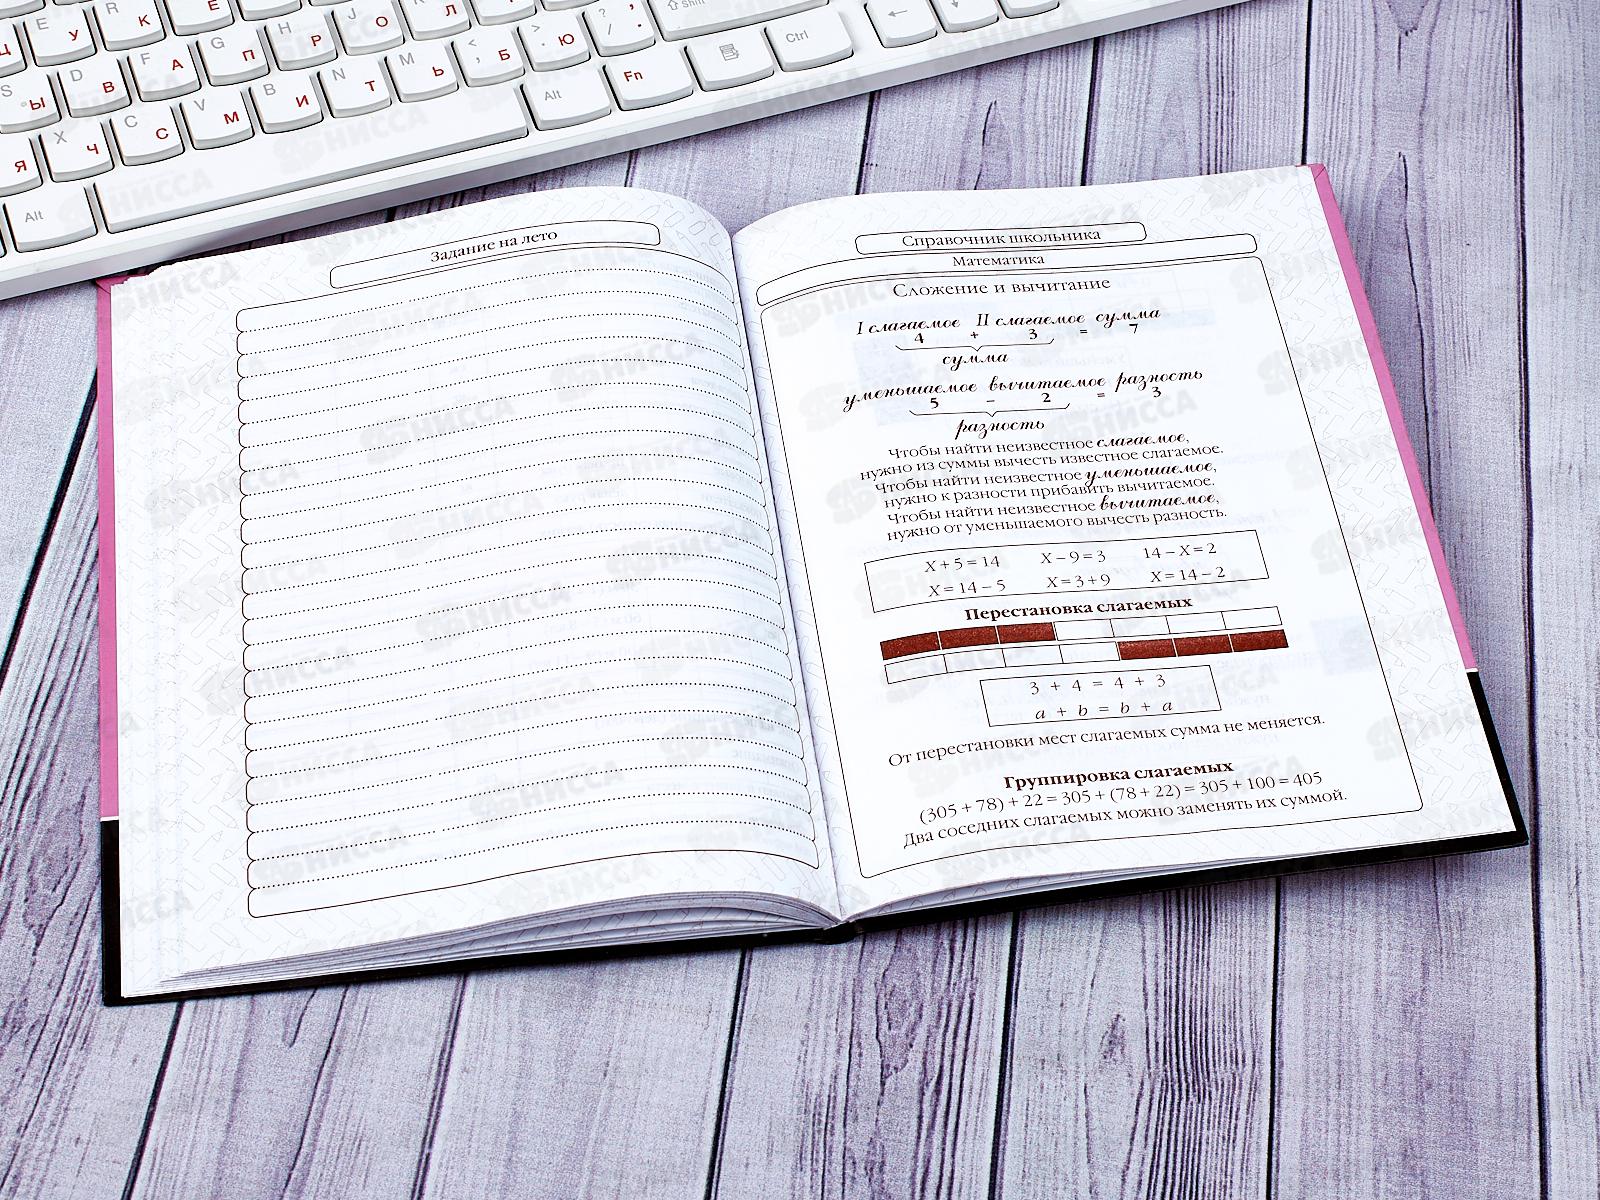 Ц Е У R К Е Г H J О K Л
S Ы D В F А G П H Р
Я X Ч C С V М B И N Т M Ь < , Б > . Ю ? / , .
⇧ Shift
Alt
Alt
Fn
Ctrl
←
↓
Задание на лето
Справочник школьника
Математика
Сложение и вычитание
I слагаемое II слагаемое сумма
4 + 3 = 7
сумма
уменьшаемое вычитаемое разность
5 – 2 = 3
разность
Чтобы найти неизвестное слагаемое,
нужно из суммы вычесть известное слагаемое.
Чтобы найти неизвестное уменьшаемое,
нужно к разности прибавить вычитаемое.
Чтобы найти неизвестное вычитаемое,
нужно от уменьшаемого вычесть разность.
X + 5 = 14 X – 9 = 3 14 – X = 2
X = 14 – 5 X = 3 + 9 X = 14 – 2
Перестановка слагаемых
3 + 4 = 4 + 3
a + b = b + a
От перестановки мест слагаемых сумма не меняется.
Группировка слагаемых
(305 + 78) + 22 = 305 + (78 + 22) = 305 + 100 = 405
Два соседних слагаемых можно заменять их суммой.
НИССА